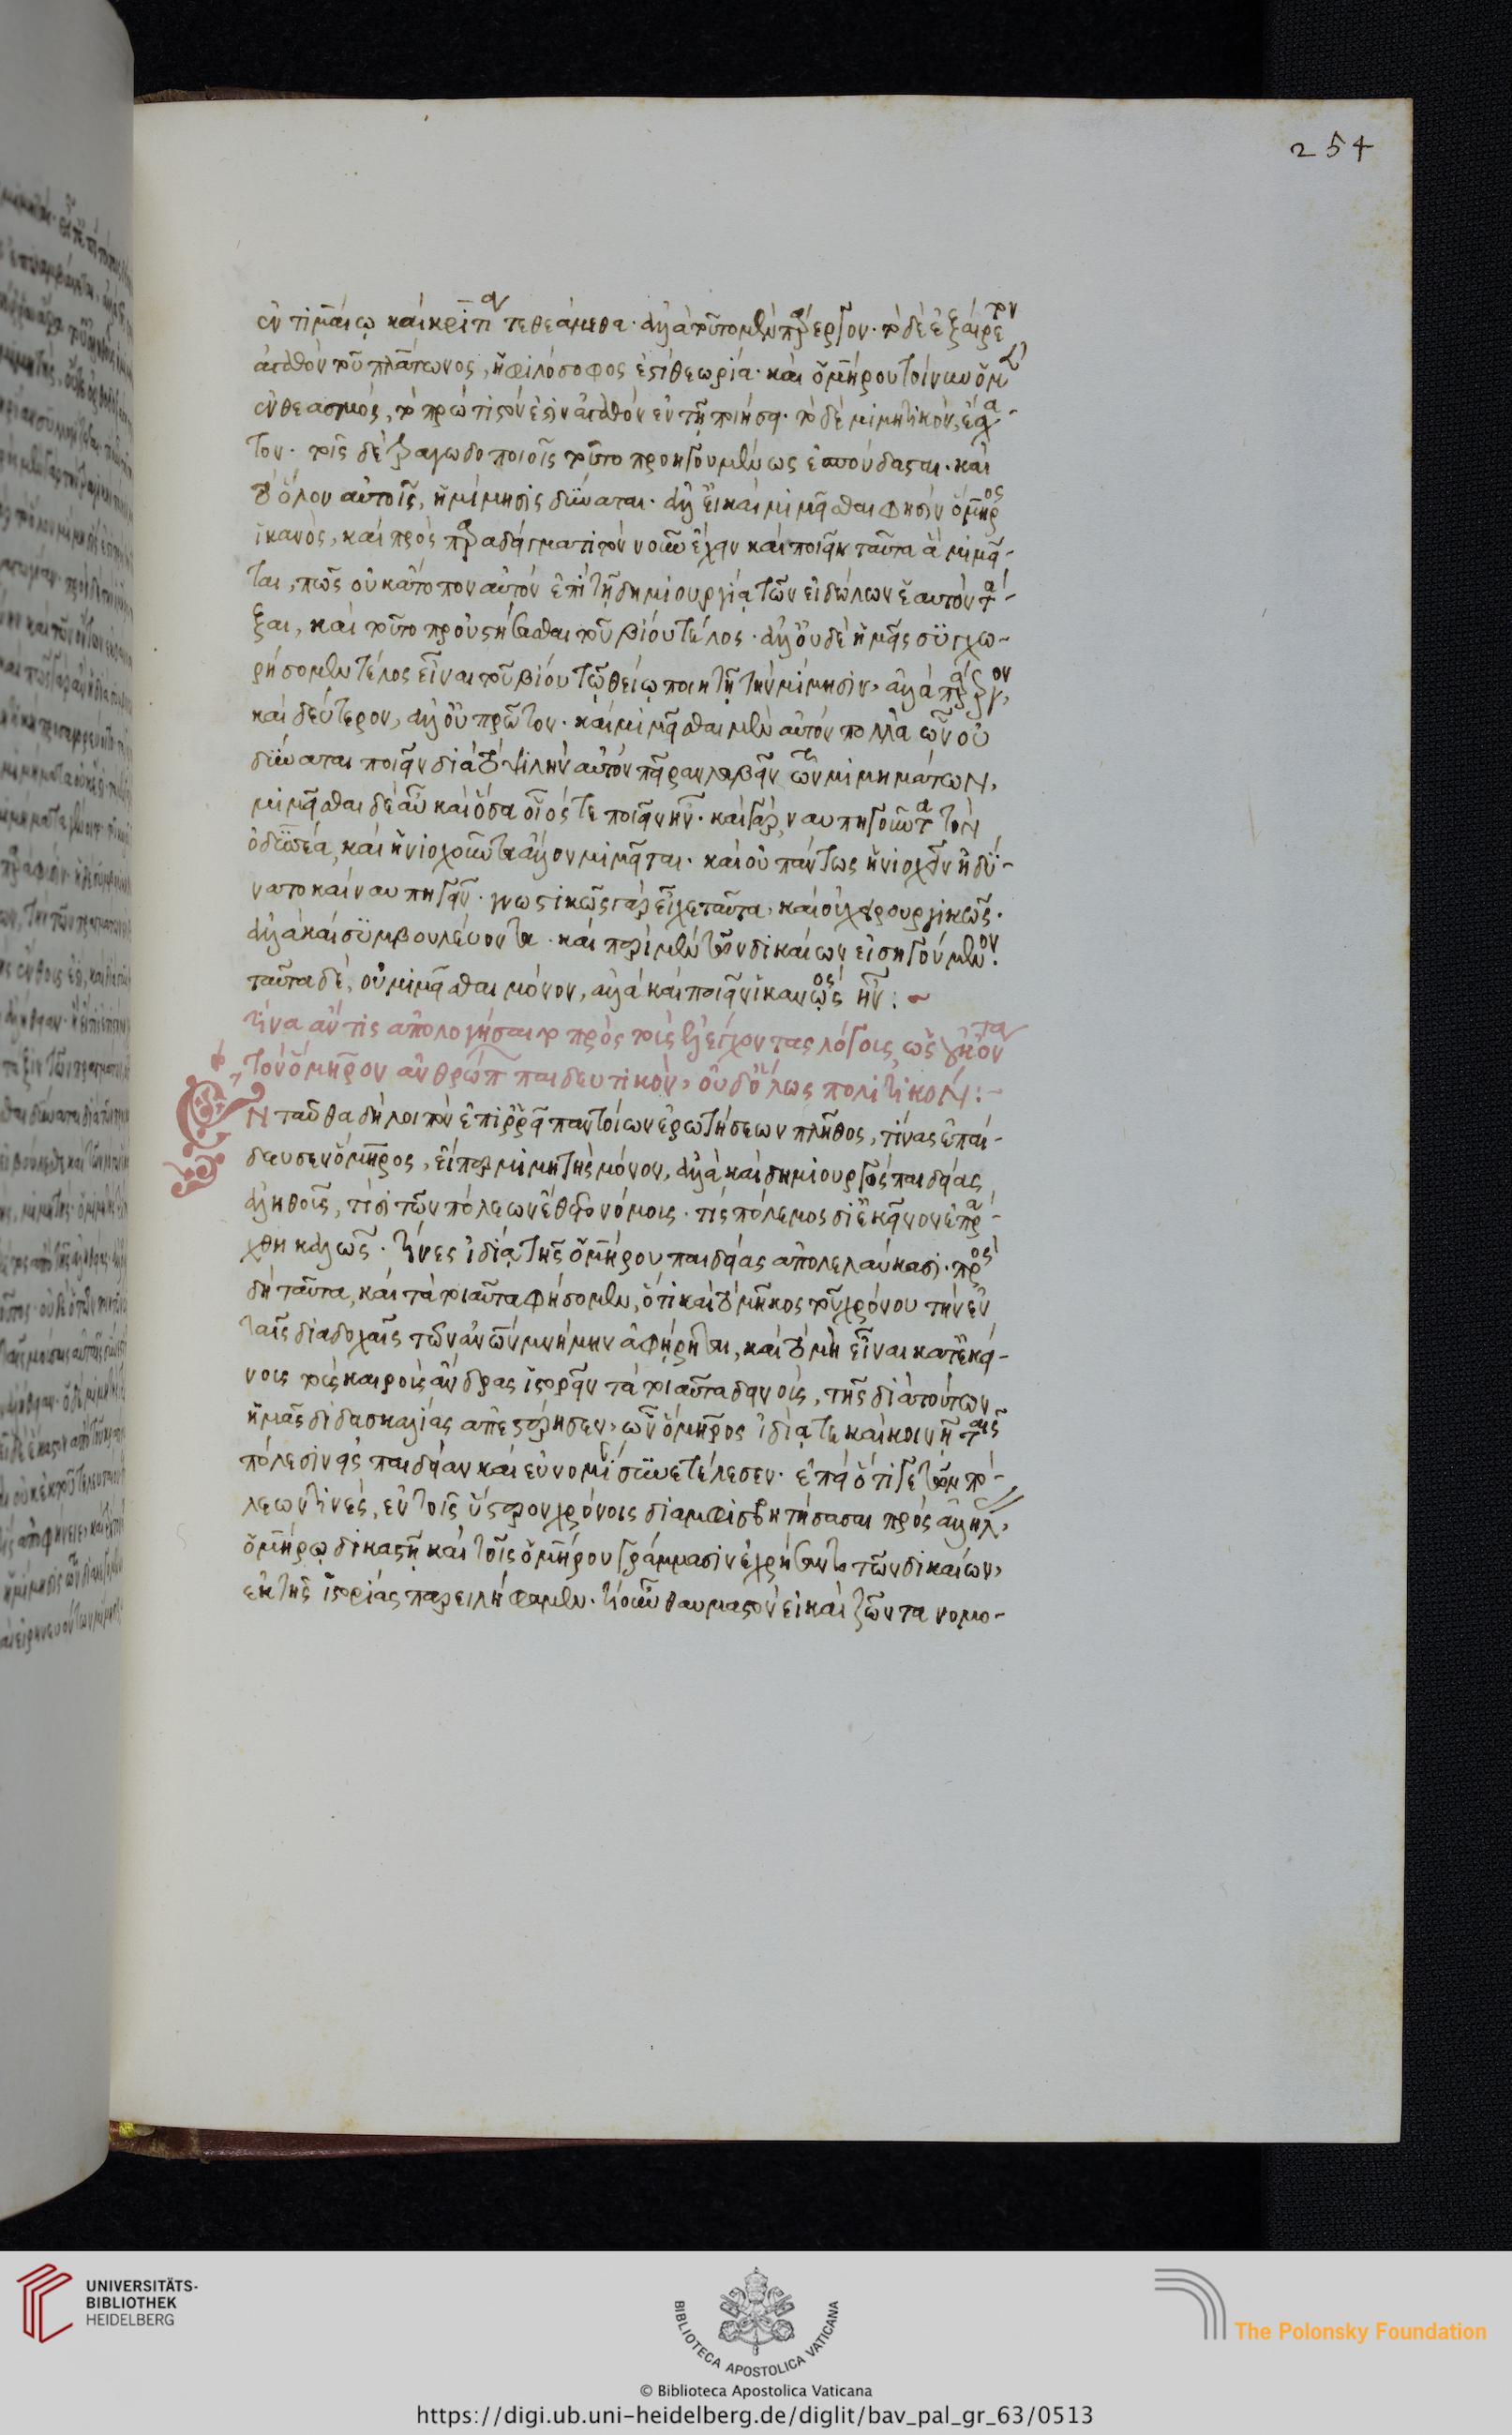 254
ἐν τιμαίῳ καὶ κριτίᾳ τεθεάμεθα· ἀλλὰ τοῦτο μὲν πάρεργον· τὸ δὲ ἐξαίρετον
ἀγαθὸν τοῦ πλάτωνος, ἡ φιλόσοφος ἐστὶ θεωρία· καὶ ὁμήρου τοίνυν ὁ μὲν
ἐνθεασμός, τὸ πρώτιστόν ἐστιν ἀγαθὸν ἐν τῇ ποιήσει· τὸ δὲ μιμητικὸν, ἔσχα-
τον· τοῖς δὲ τραγωδοποιοῖς τοῦτο προηγουμένως ἐσπούδασται· καὶ
τὸ ὅλον αὐτοῖς, ἡ μίμησις δύναται· ἀλλ' εἰ καὶ μιμεῖσθαι φησὶν ὅμηρος
ἱκανὸς, καὶ πρὸς παραδείγματι τὸν νοῦν ἔχειν καὶ ποιεῖν ταῦτα ἃ μιμεῖ-
ται, πῶς οὐκ ἄτοπον αὐτὸν ἐπὶ τῇ δημιουργίᾳ τῶν εἰδώλων ἑαυτὸν τά-
ξαι, καὶ τοῦτο προὐστήσασθαι τοῦ βίου τέλος· ἀλλ' οὐδὲ ἡμεῖς συγχω-
ρήσομεν τέλος εἶναι τοῦ βίου τῷ θείῳ ποιητῇ τὴν μίμησιν, ἀλλὰ πάρεργον,
καὶ δεύτερον, ἀλλ' οὐ πρῶτον· καὶ μιμεῖσθαι μὲν αὐτὸν πολλὰ ὧν οὐ
δύναται ποιεῖν διὰ τὸ ὕλην αὐτὸν παραλαβεῖν τῶν μιμημάτων,
μιμεῖσθαι δὲ αὖ καὶ ὅσα οἷός τε ποιεῖν ἦν· καὶ γὰρ ναυπηγοῦντα τὸν
ὀδυσσέα, καὶ ἡνιοχοῦντα ἄλλον μιμεῖται· καὶ οὐ πάντως ἡνιοχεῖν ἠδύ-
νατο καὶ ναυπηγεῖν· γνωστικῶς γὰρ εἶχε ταῦτα, καὶ οὐ χειρουργικῶς·
ἀλλὰ καὶ συμβουλεύοντα· καὶ περὶ μὲν τῶν δικαίων εἰσηγούμενον·
ταῦτα δὲ, οὐ μιμεῖσθαι μόνον, ἀλλὰ καὶ ποιεῖν ἱκανὸς ἦν:~
τίνα ἄν τις ἀπολογήσαιτο πρὸς τοὺς ἐλέγχοντας λόγους, ὡς οὐκ ὄντα
τὸν ὅμηρον ἀνθρώπων παιδευτικὸν, οὐδ' ὅλως πολιτικόν:-
Ἐνταῦθα δὴ λοιπὸν ἐπιρρεῖ παντοίων ἐρωτήσεων πλῆθος, τίνας ἐπαί-
δευσεν ὅμηρος, εἴπερ μιμητὴς μόνον, ἀλλὰ καὶ δημιουργὸς παιδείας
ἀληθοῦς, τίσι τῶν πόλεων ἔθετο νόμους· τίς πόλεμος δι' ἐκεῖνον ἐπρά-
χθη καλῶς· τίνες ἰδίᾳ τῆς ὁμήρου παιδείας ἀπολελαύκασι· πρὸς
δὴ ταῦτα, καὶ τὰ τοιαῦτα φήσομεν, ὅτι καὶ τὸ μῆκος τοῦ χρόνου τὴν ἐν
ταῖς διαδοχαῖς τῶν ἀνων μνήμην ἀφῄρηται, καὶ τὸ μὴ εἶναι κατ' ἐκεί-
νους τοὺς καιροὺς ἄνδρας ἱστορεῖν τὰ τοιαῦτα δεινοὺς, τῆς διὰ τούτων
ἡμᾶς διδασκαλίας ἀπεστέρησεν, ὧν ὅμηρος ἰδίᾳ τε καὶ κοινῇ ταῖς
πόλεσιν εἰς παιδείαν καὶ εὐνομίαν συνετέλεσεν· ἐπεὶ ὅτι γε τῶν πό-
λεων τινὲς, ἐν τοῖς ὕστερον χρόνοις διαμφισβητήσασαι πρὸς ἀλλήλας,
ὁμήρῳ δικαστῇ καὶ τοῖς ὁμήρου γράμμασιν ἐχρήσαντο τῶν δικαίων,
ἐκ τῆς ἱστορίας παρειλήφαμεν· τί οὖν θαυμαστὸν εἰ καὶ ζῶντα νομο-
UNIVERSITÄTS-
BIBLIOTHEK
HEIDELBERG
BIBLIOTECA APOSTOLICA VATICANA
The Polonsky Foundation
© Biblioteca Apostolica Vaticana
https://digi.ub.uni-heidelberg.de/diglit/bav_pal_gr_63/0513